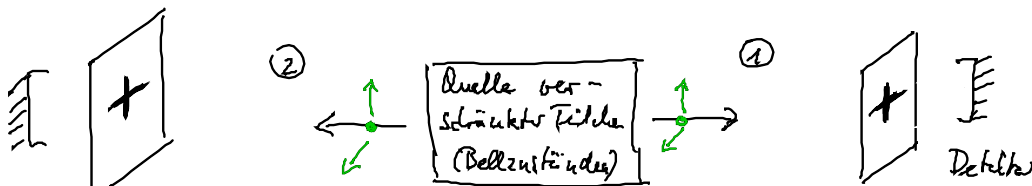 ②
①
Quelle ver-
schränkter Teilchen
(Bellzuständen)
Detektor